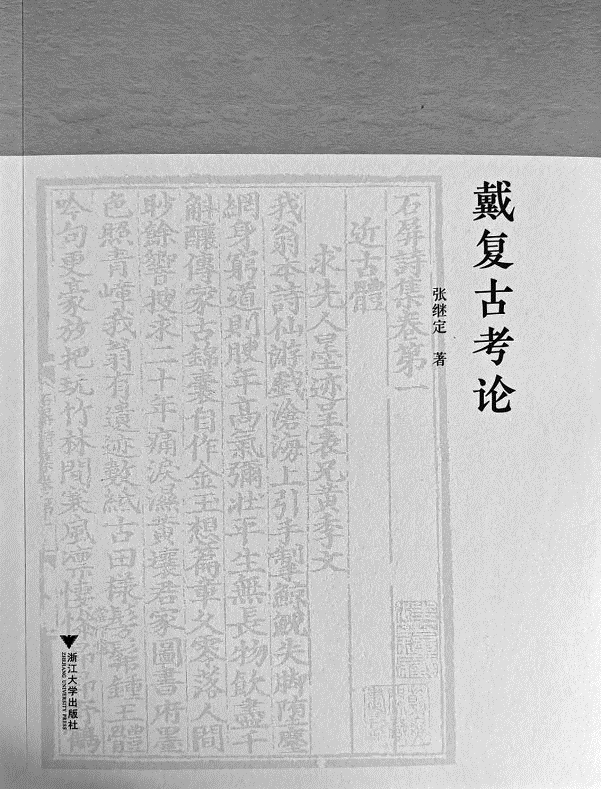 戴复古考论
张继定 著
石屏詩集卷第一
近古體
求先人墨迹呈表兄黃季文
我翁本詩仙游戲滄海上引手掣鯨鯢失脚墮塵
網身窮道則腴年高氣彌壯平生無長物飲盡千
斛釀傳家古錦囊自作金玉想篇章久零落人間
眇餘響搜求二十年痛淚濕黃壤君家圖書府墨
色照青嶂我翁有遺迹數紙古田様髣髴鍾王體
吟句更豪放把玩竹林間寒風凛悽
浙江大学出版社
ZHEJIANG UNIVERSITY PRESS